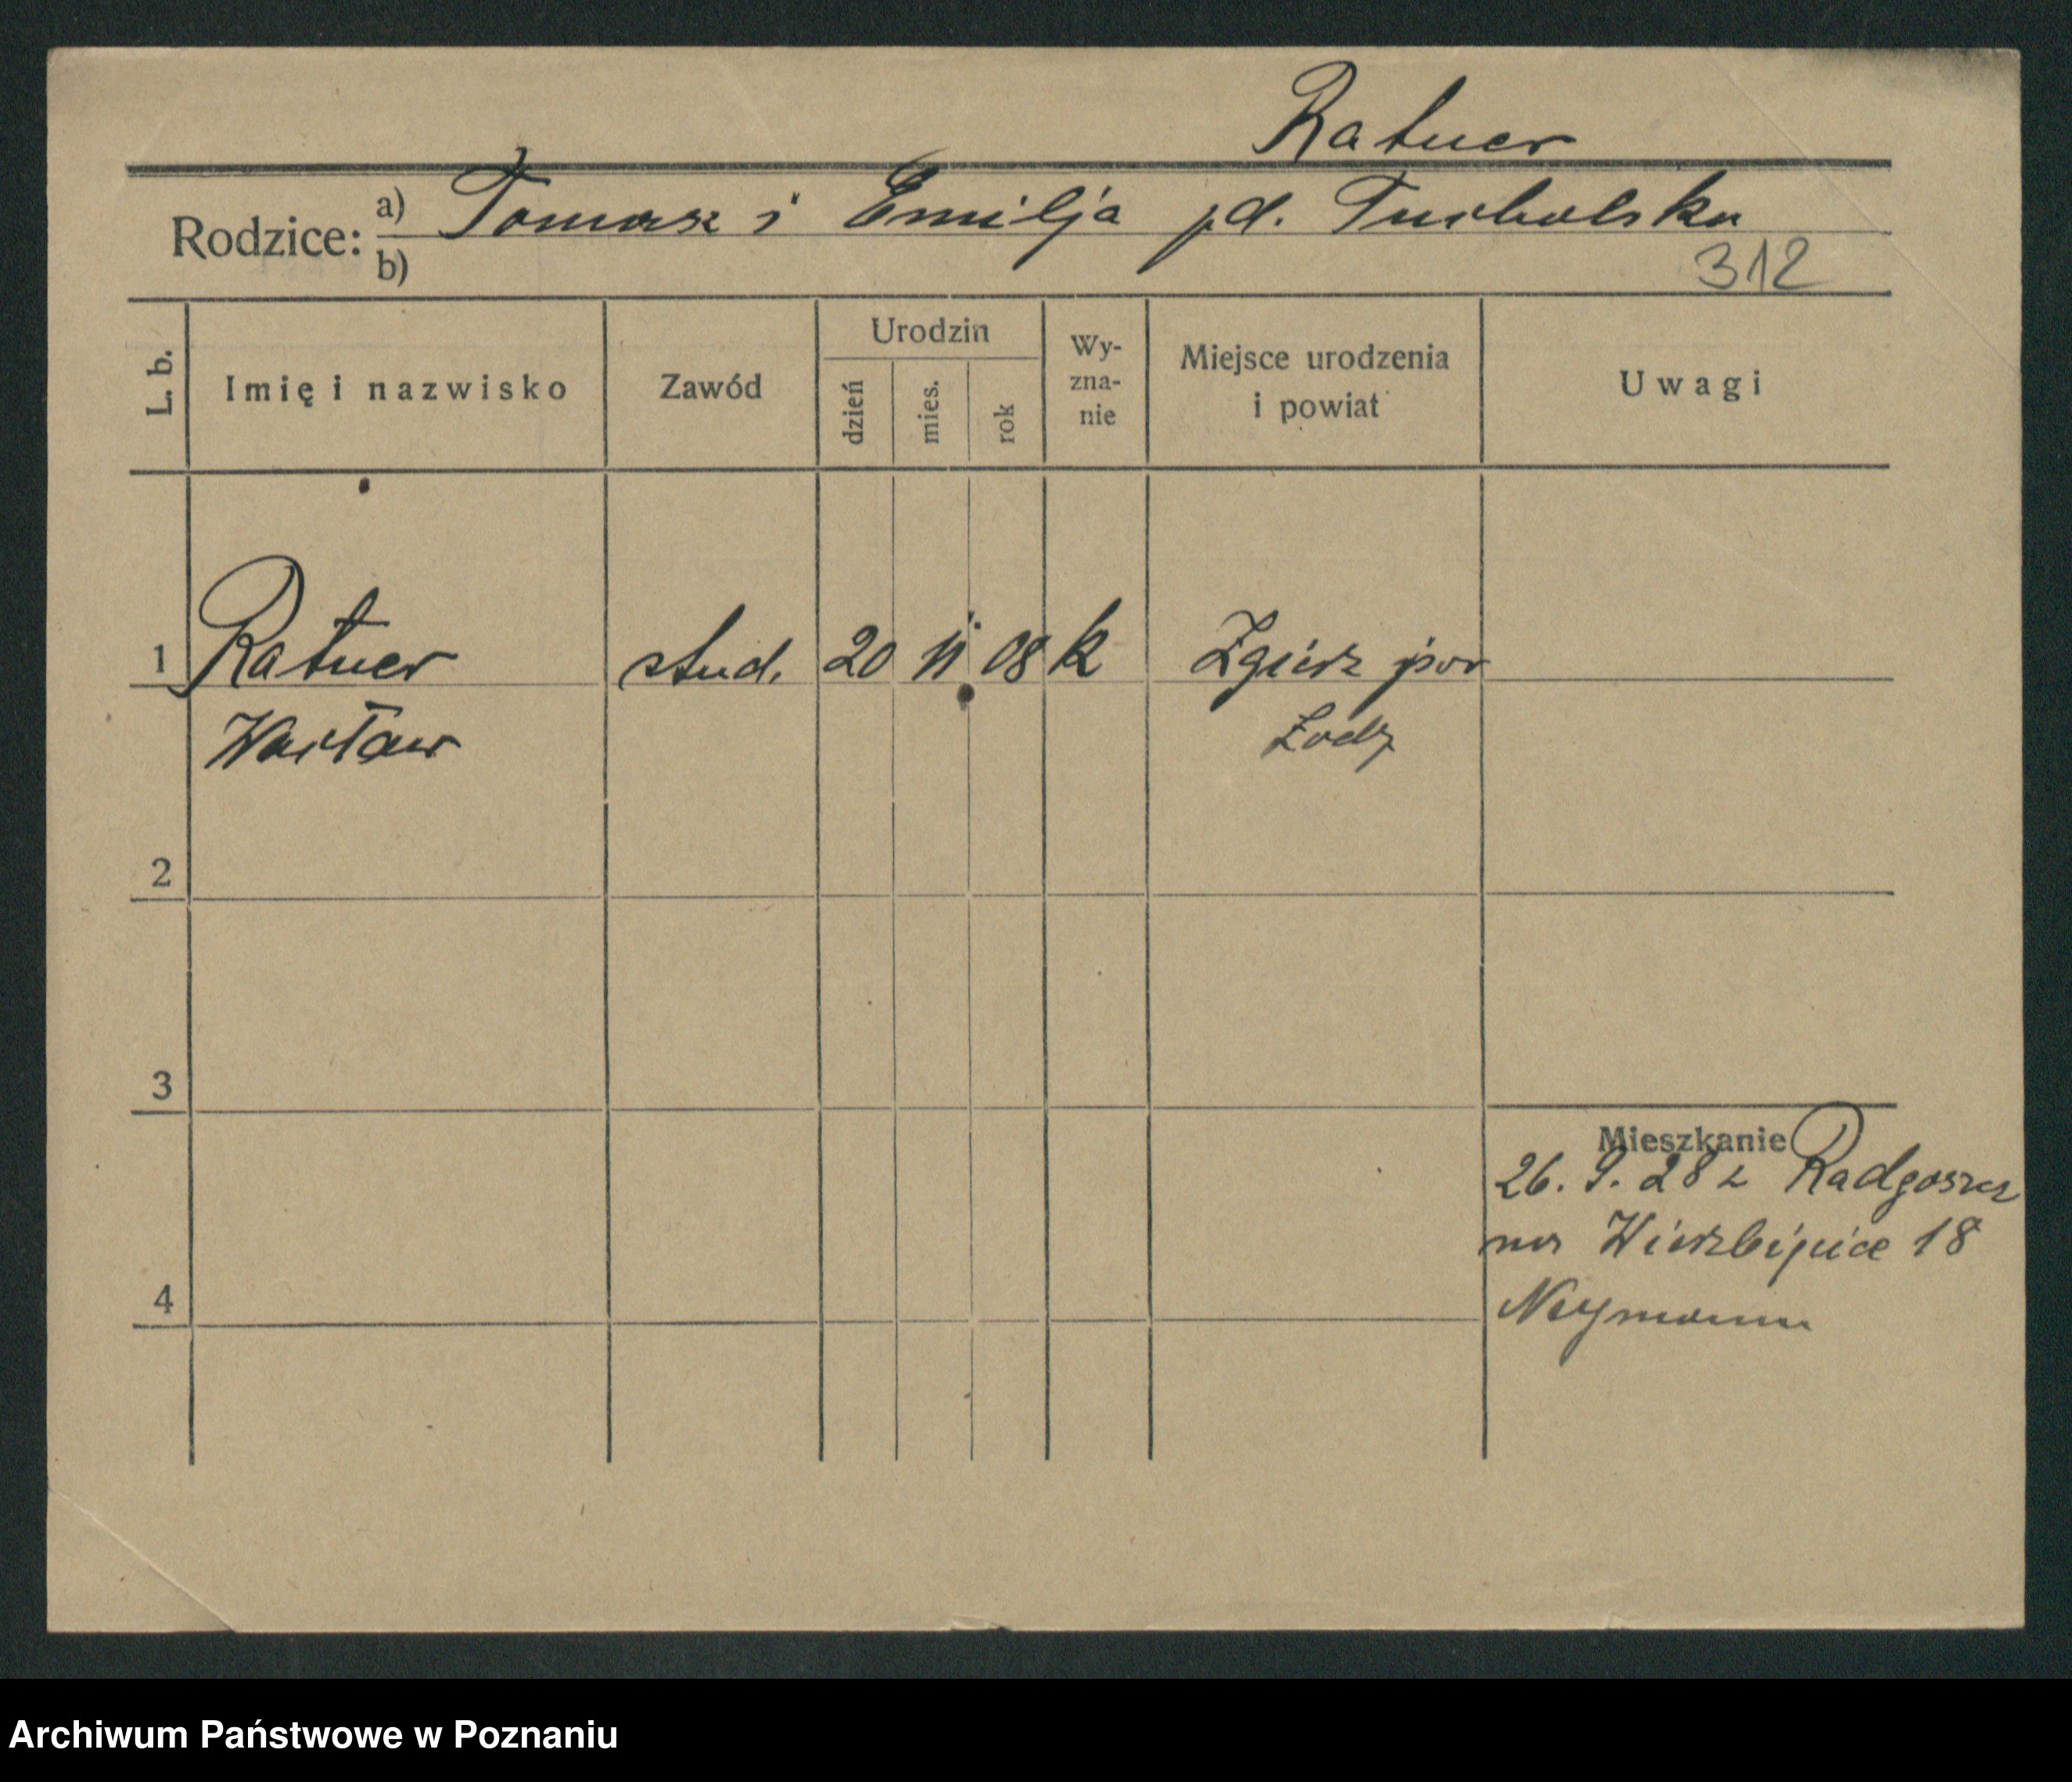 Ratner
Rodzice: a) Tomasz i Emilja pd. Tucholska
b)
312
L. b. Imię i nazwisko Zawód Urodzin dzień mies. rok Wy-zna-nie Miejsce urodzenia i powiat Uwagi
1 Ratner stud. 20 11 08 k Zgierz pow
Wacław Łodz
2
3
Mieszkanie
26. 9. 28 z Radgoszcz
na Wierzbięcice 18
4
Neymann
Archiwum Państwowe w Poznaniu